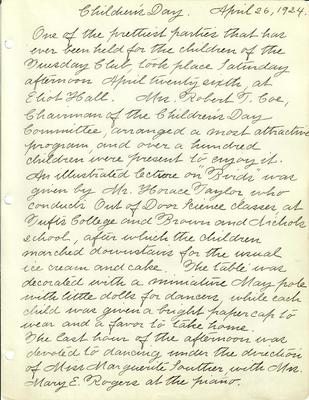 Children's Day. April 26, 1924.
One of the prettiest parties that has
ever been held for the children of the
Tuesday Club, took place Saturday
afternoon April twenty sixth at
Eliot Hall. Mrs. Robert T. Coe,
Chairman of the Children's Day
Committee, arranged a most attractive
program, and over a hundred
children were present to enjoy it.
An illustrated lecture on "Birds" was
given by Mr. Horace Taylor who
conducts Out of Door Science classes, at
Tufts College and Brown and Nichols
school, after which the children
marched downstairs for the usual
ice cream and cake. The table was
decorated with a miniature May pole
with little dolls for dancers, while each
child was given a bright paper cap to
wear and a favor to take home.
The last hour of the afternoon was
devoted to dancing under the direction
of Miss Marguerite Souther, with Mrs.
Mary E. Rogers at the piano.